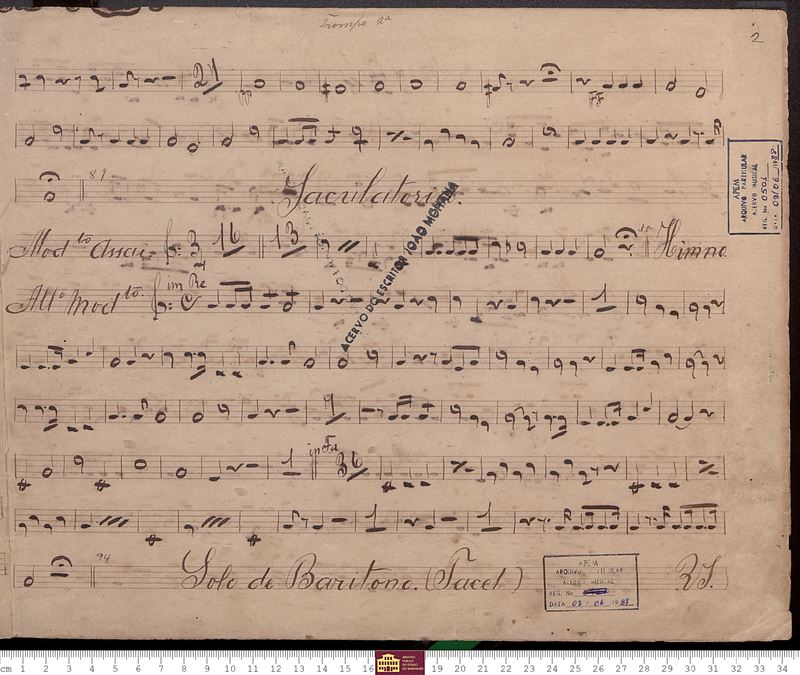 Trompa 2ª
2
21
pp
ff
81
Jaculatoria
APEM
ARQUIVO PARTICULAR
ACERVO MUSICAL
REG. No 0501
DATA 03/06/1988
Modto Assai. 3 4 16 13 Himno.
ACERVO DO ESCRITOR JOÃO MOHANA
Allo Modto. im Re C 1
7
1 in Fa 36
1 1
94 Solo de Baritono. (Tacet) R.S.
APEM
ACERVO MUSICAL
REG. No
DATA 03/06/1988
cm 1 2 3 4 5 6 7 8 9 10 11 12 13 14 15 16 19 20 21 22 23 24 25 26 27 28 29 30 31 32 33 34